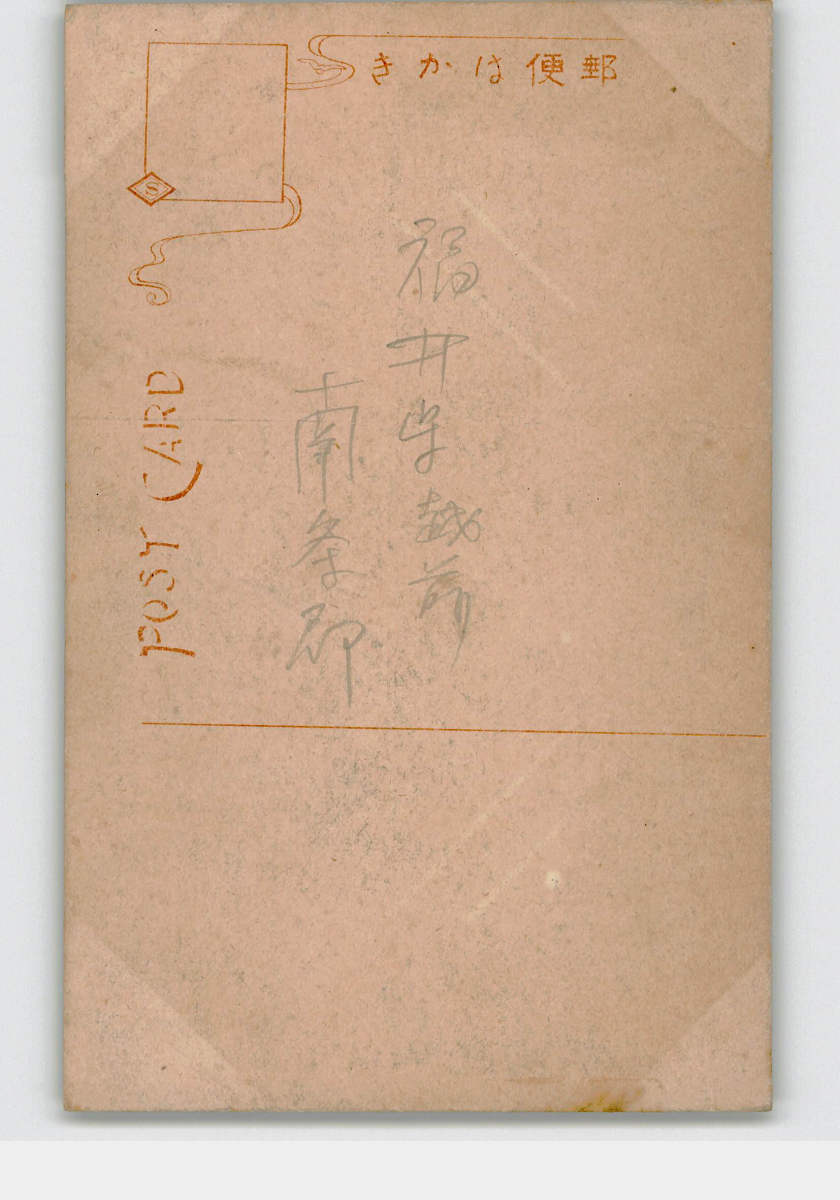 郵便はかき
福井県越前
南条郡
POST CARD
S